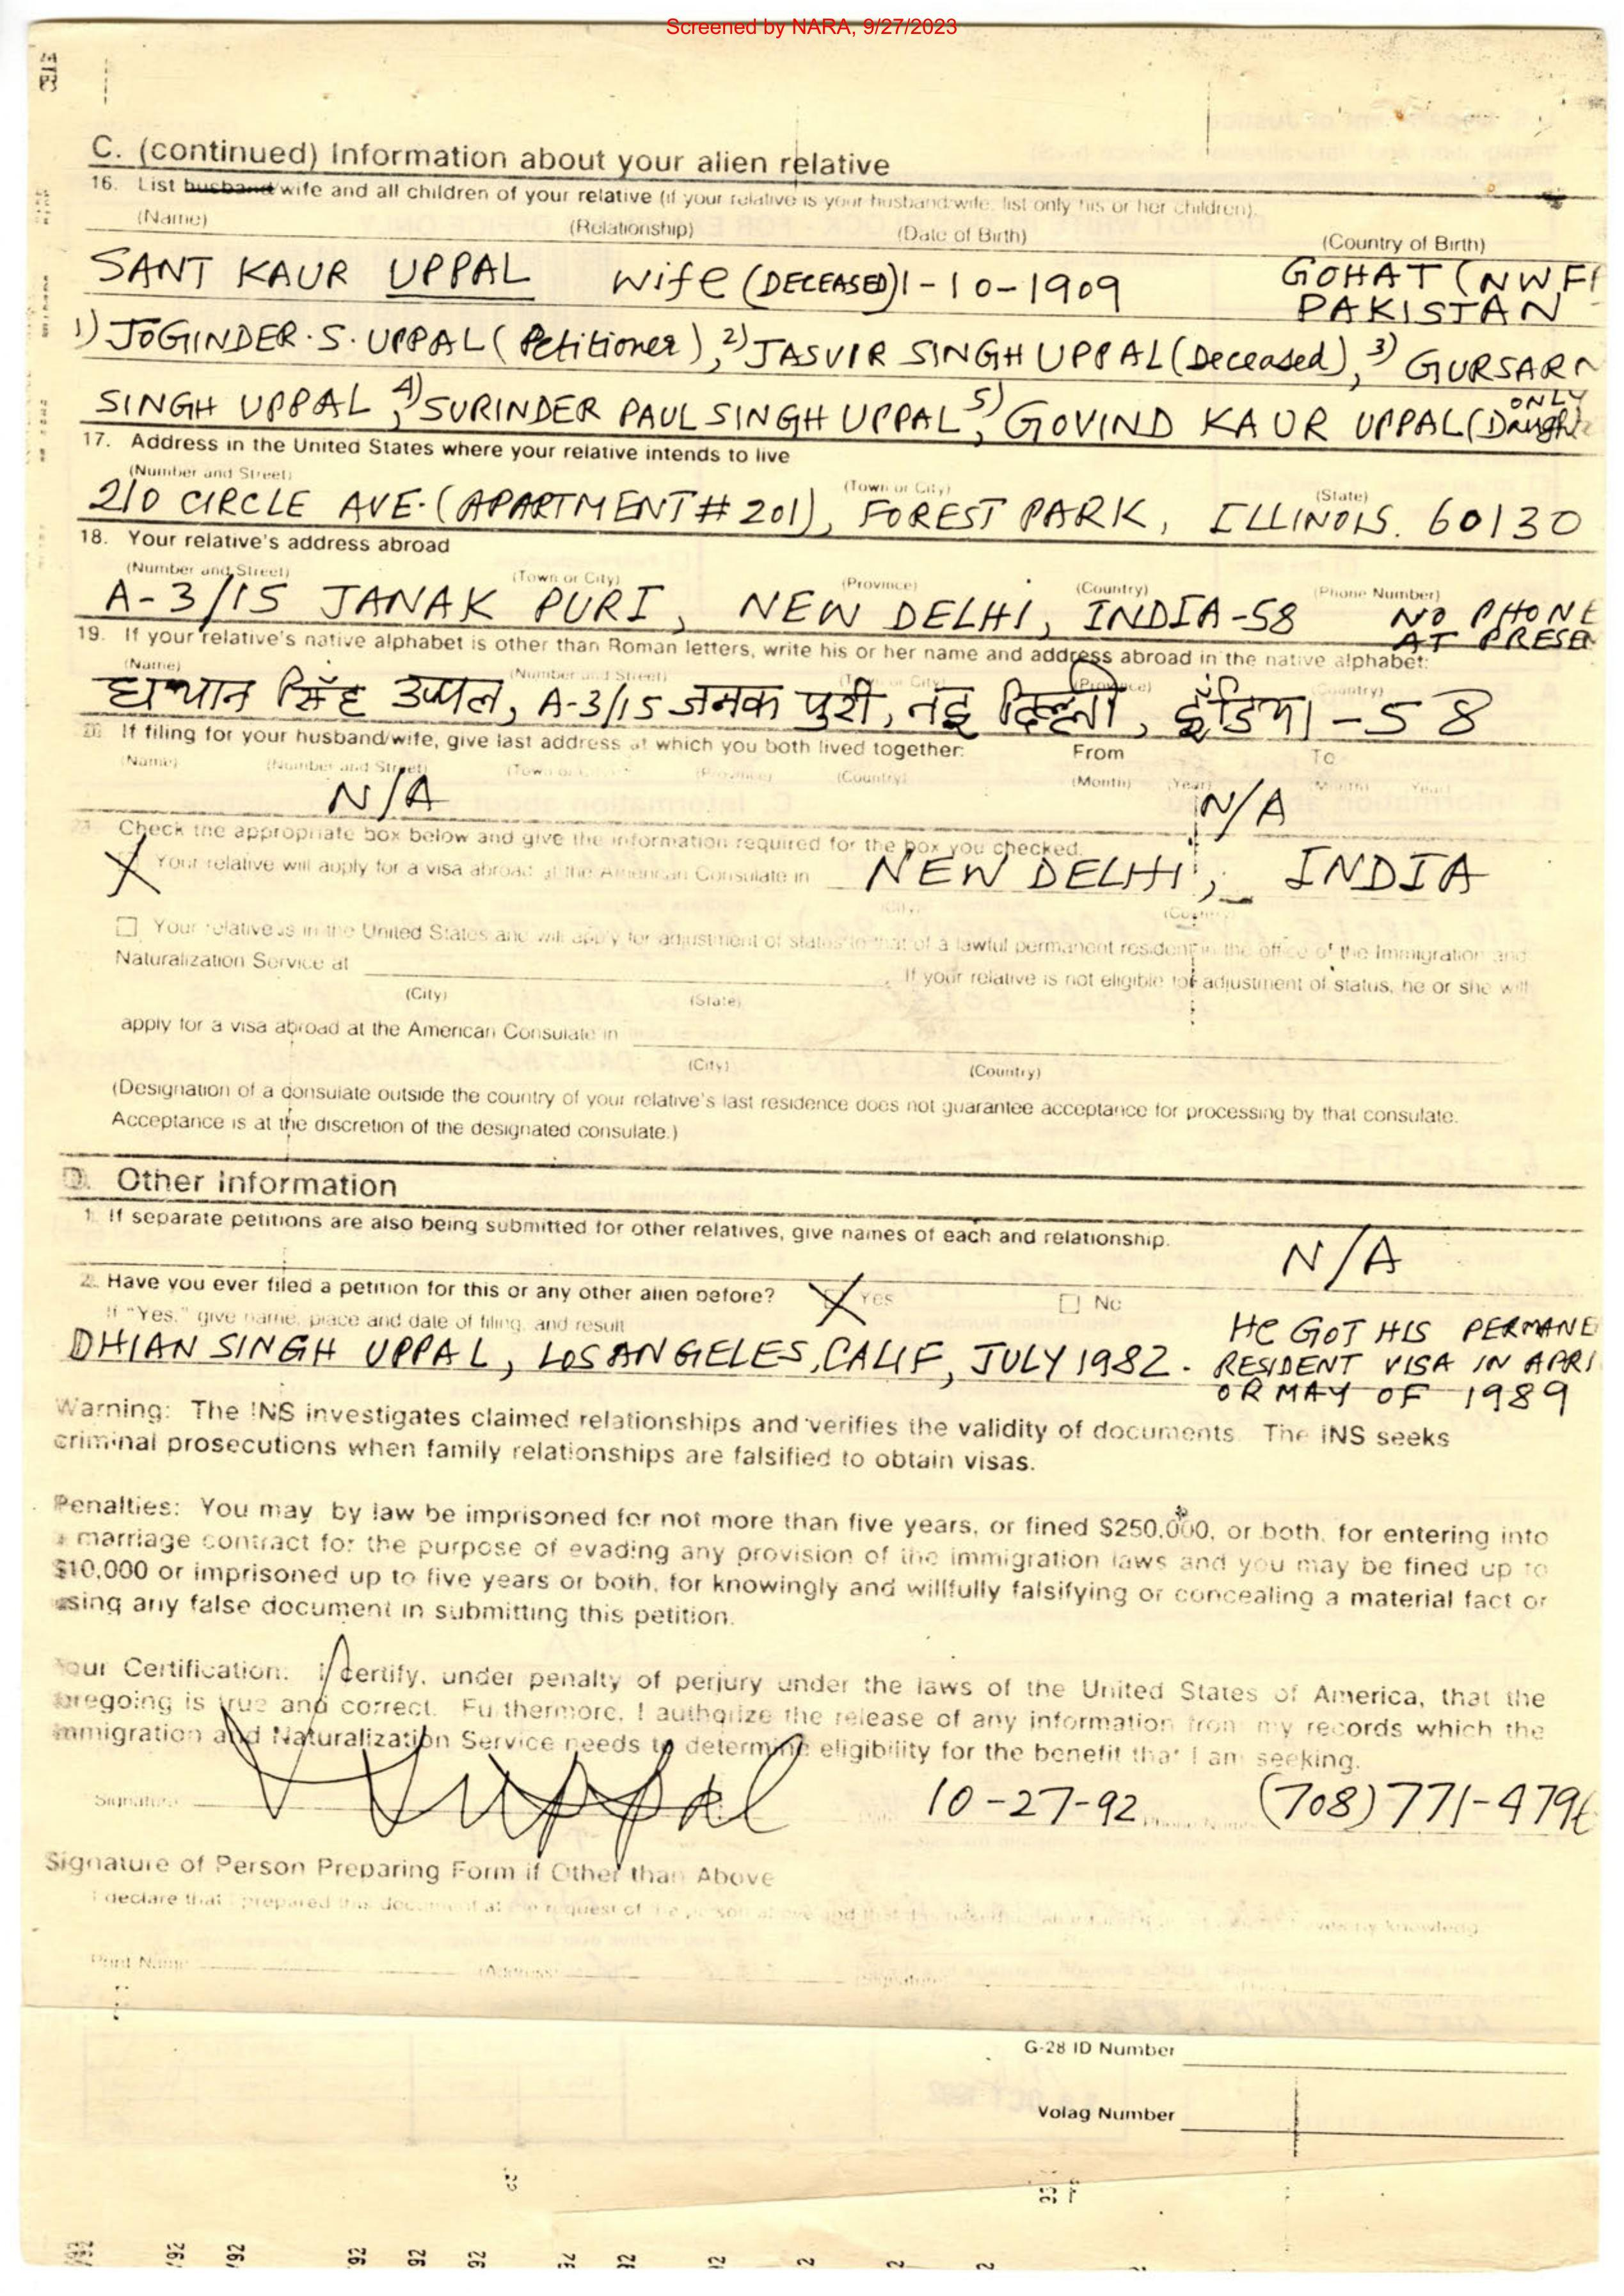 Screened by NARA, 9/27/2023
C. (continued) Information about your alien relative
16. List husband/wife and all children of your relative (if your relative is your husband/wife, list only his or her children).
(Name) (Relationship) (Date of Birth) (Country of Birth)
SANT KAUR UPPAL Wife (DECEASED) 1-10-1909 GOHAT (NWF
PAKISTAN
1) JOGINDER. S. UPPAL (Petitioner), 2) JASVIR SINGH UPPAL (Deceased), 3) GURSARN
SINGH UPPAL, 4) SURINDER PAUL SINGH UPPAL, 5) GOVIND KAUR UPPAL (ONLY Daught
17. Address in the United States where your relative intends to live
(Number and Street) (Town or City) (State)
210 CIRCLE AVE. (APARTMENT # 201), FOREST PARK, ILLINOIS. 60130
18. Your relative's address abroad
(Number and Street) (Town or City) (Province) (Country) (Phone Number)
A-3/15 JANAK PURI, NEW DELHI, INDIA-58 NO PHONE
AT PRESEN
19. If your relative's native alphabet is other than Roman letters, write his or her name and address abroad in the native alphabet:
(Name) (Number and Street) (Town or City) (Province) (Country)
ध्यान सिंह उप्पल, A-3/15 जनक पुरी, नई दिल्ली, इंडिया - 58
20. If filing for your husband/wife, give last address at which you both lived together: From To
(Name) (Number and Street) (Town or City) (Province) (Country) (Month) (Year) (Month) (Year)
N/A N/A
Check the appropriate box below and give the information required for the box you checked.
X Your relative will apply for a visa abroad at the American Consulate in NEW DELHI, INDIA
(City) (Country)
Your relative is in the United States and will apply for adjustment of status to that of a lawful permanent resident in the office of the Immigration and
Naturalization Service at . If your relative is not eligible for adjustment of status, he or she will
(City) (State)
apply for a visa abroad at the American Consulate in
(City) (Country)
(Designation of a consulate outside the country of your relative's last residence does not guarantee acceptance for processing by that consulate.
Acceptance is at the discretion of the designated consulate.)
D. Other Information
1. If separate petitions are also being submitted for other relatives, give names of each and relationship.
N/A
2. Have you ever filed a petition for this or any other alien before? X Yes No
If "Yes," give name, place and date of filing, and result
DHIAN SINGH UPPAL, LOS ANGELES, CALIF, JULY 1982. HE GOT HIS PERMANE
RESIDENT VISA IN APRI
OR MAY OF 1989
Warning: The INS investigates claimed relationships and verifies the validity of documents. The INS seeks
criminal prosecutions when family relationships are falsified to obtain visas.
Penalties: You may by law be imprisoned for not more than five years, or fined $250,000, or both, for entering into
a marriage contract for the purpose of evading any provision of the immigration laws and you may be fined up to
$10,000 or imprisoned up to five years or both, for knowingly and willfully falsifying or concealing a material fact or
using any false document in submitting this petition.
Your Certification: I certify, under penalty of perjury under the laws of the United States of America, that the
foregoing is true and correct. Furthermore, I authorize the release of any information from my records which the
Immigration and Naturalization Service needs to determine eligibility for the benefit that I am seeking.
Signature Uppal 10-27-92 (708) 771-4796
Signature of Person Preparing Form if Other than Above
I declare that I prepared this document at the request of the person above and that
Print Name (Address) (Signature)
G-28 ID Number
Volag Number